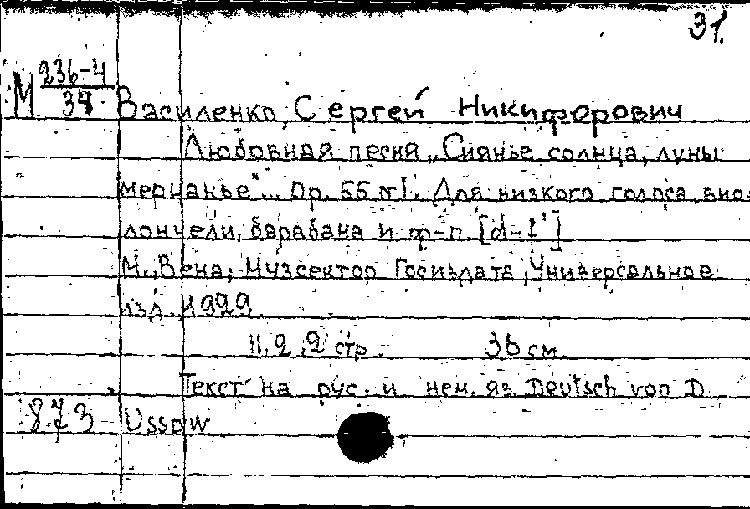 31.
М 236-4
37
Василенко, Сергей Никифорович
Любовная песня „Сиянье солнца, луны
мерцанье"... Op. 55 №1. Для низкого голоса, вио-
лончели, барабана и ф-п. [d-f']
М., Вена, Музсектор Госиздата, Универсальное
изд. 1929.
11, 2, 2 стр. 36 см.
Текст на рус. и нем. яз. Deutsch von D.
873 Ussow